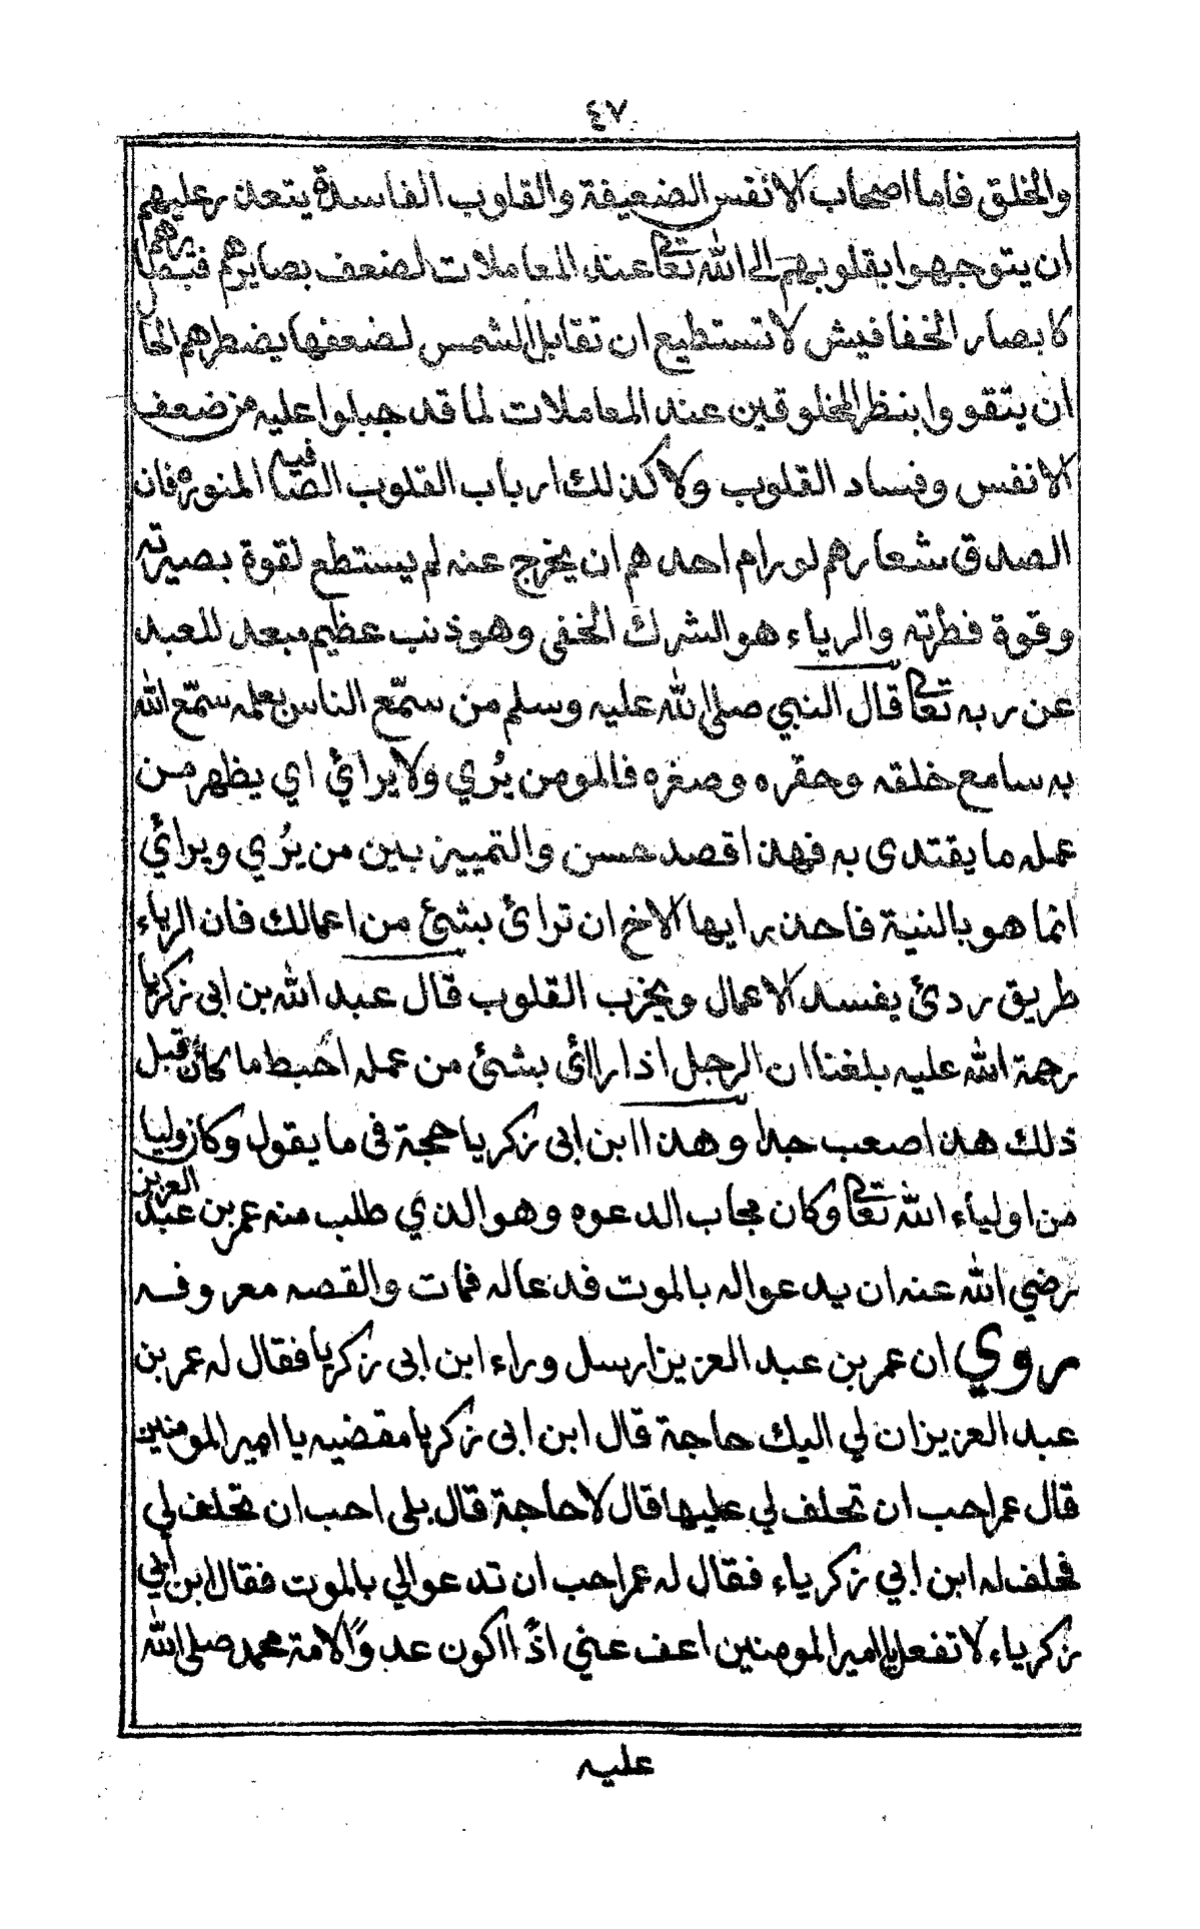 ٤٧
والخلق فاما اصحاب الانفس الضعيفة والقلوب الفاسدة يتعذر عليهم
ان يتوجهوا بقلوبهم الى الله تعالى عند المعاملات لضعف بصايرهم فبصايرهم
كابصار الخفافيش لا تستطيع ان تقابل الشمس لضعفها يضطرهم الحا
ان يتقووا بنظر المخلوقين عند المعاملات لما قد جبلوا عليه من ضعف
الانفس وفساد القلوب ولا كذلك ارباب القلوب الصافيه المنوره فان
الصدق شعارهم لو رام احدهم ان يخرج عنه لم يستطع لقوة بصيرته
وقوة فطرته والرياء هو الشرك الخفي وهو ذنب عظيم مبعد للعبد
عن ربه تعالى قال النبي صلى الله عليه وسلم من سمّع الناس بعلمه سمّع الله
به سامع خلقه وحقره وصغره فالمومن يُري ولا يرائي اي يظهر من
عمله ما يقتدى به فهذا قصد حسن والتمييز بين من يُري ويرائي
انما هو بالنية فاحذر ايها الاخ ان ترائ بشئ من اعمالك فان الرياء
طريق ردئ يفسد الاعمال ويخرب القلوب قال عبد الله بن ابى زكريا
رحمة الله عليه بلغنا ان الرجل اذا راائ بشئ من عمله احبط ما كان قبل
ذلك هذا صعب جدا وهذا ابن ابى زكريا حجة فى ما يقول وكان وليا
من اولياء الله تعالى وكان مجاب الدعوه وهو الذي طلب منه عمر بن عبد العزيز
رضي الله عنه ان يدعو اله بالموت فدعا له فمات والقصه معروفه
روي ان عمر بن عبد العزيز ارسل وراء ابن ابى زكريا فقال له عمر بن
عبد العزيز ان لي اليك حاجة قال ابن ابى زكريا مقضيه يا امير المومنين
قال عمر احب ان تحلف لي عليها قال لا حاجة قال بلى احب ان تحلف لي
فحلف له ابن ابي زكرياء فقال له عمر احب ان تدعو الي بالموت فقال ابن ابي
زكرياء لا تفعل يا امير المومنين اعف عني اذًا اكون عدوًّا لامة محمد صلى الله
عليه